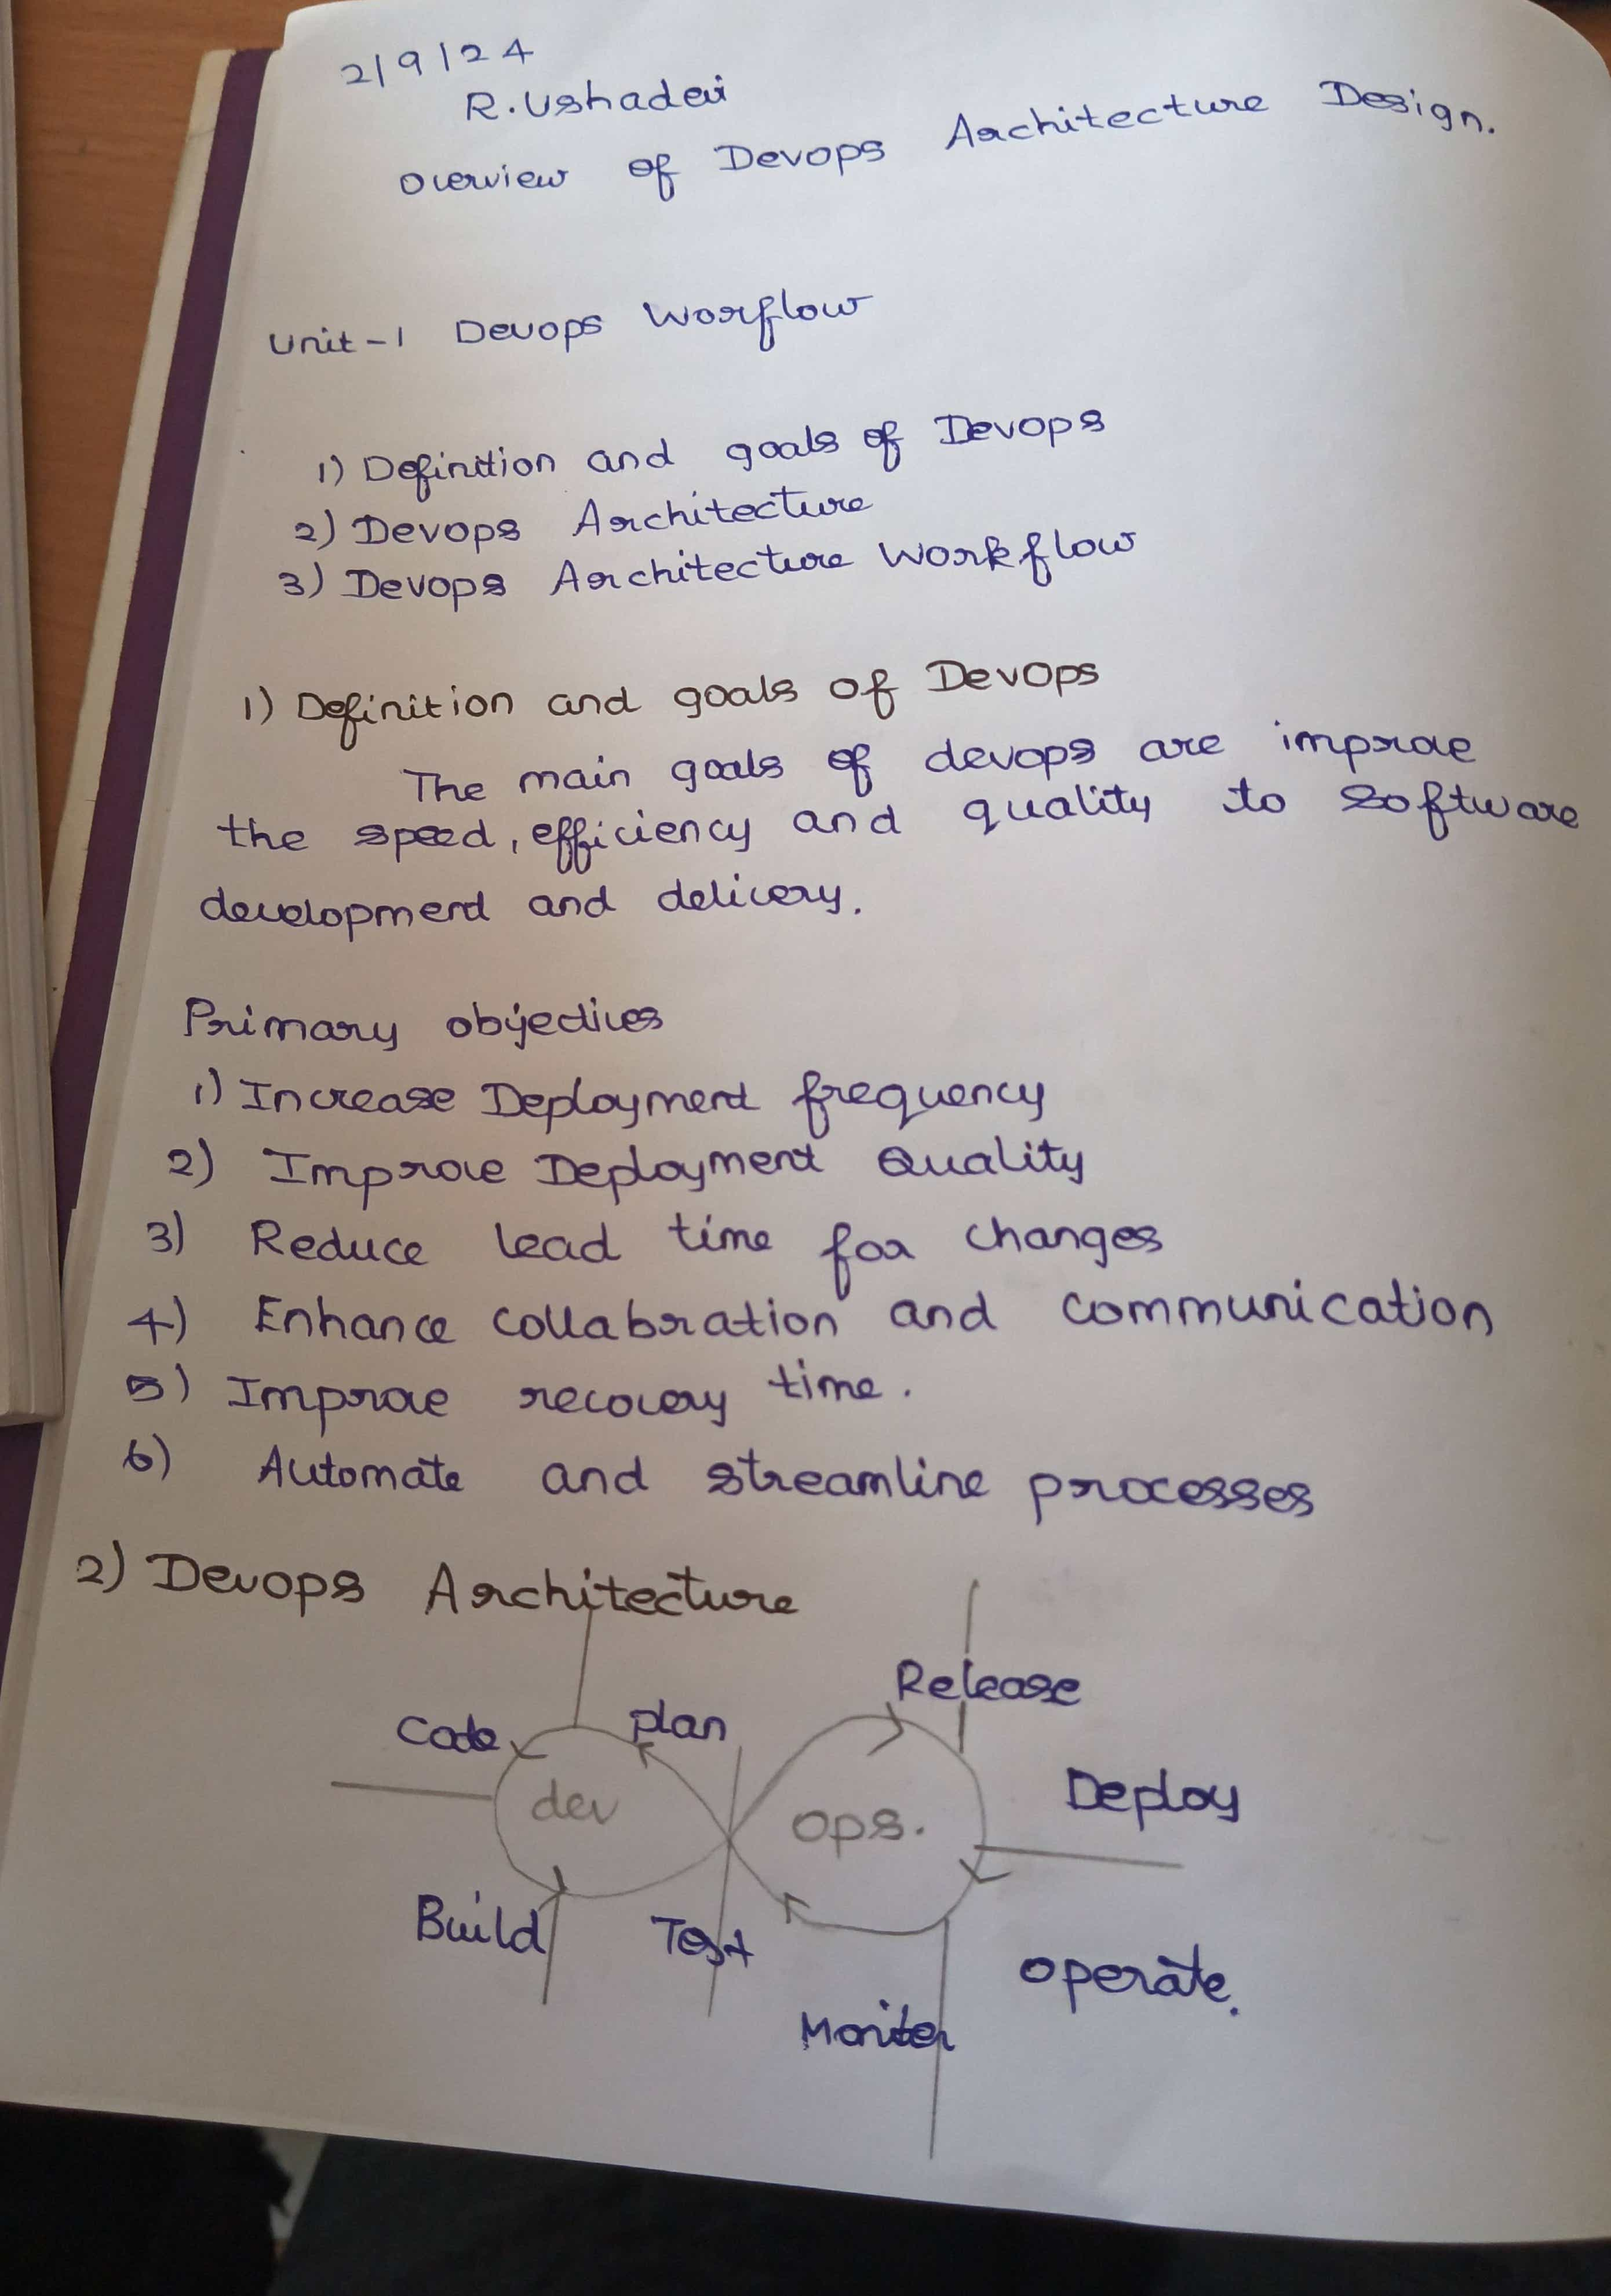 2/9/24
R.Ushadevi
Overview of Devops Architecture Design.
Unit-1 Devops Worflow
1) Definition and goals of Devops
2) Devops Architecture
3) Devops Architecture Workflow
1) Definition and goals of DevOps
The main goals of devops are improve
the speed, efficiency and quality to software
development and delivery.
Primary objectives
1) Increase Deployment frequency
2) Improve Deployment Quality
3) Reduce lead time for changes
4) Enhance collabration and communication
5) Improve recovery time.
6) Automate and streamline processes
2) Devops Architecture
Release
Code plan
Deploy
dev ops.
Build Test
operate.
Moniter